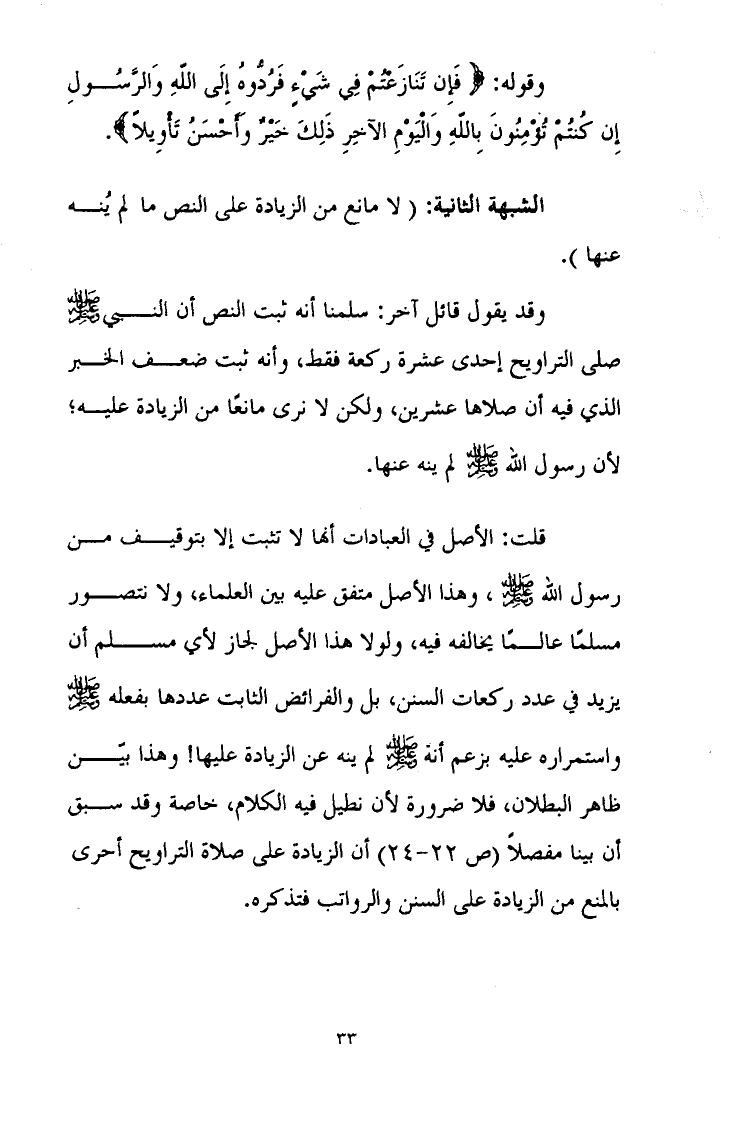 وقوله: ﴿ فَإِن تَنَازَعْتُمْ فِي شَيْءٍ فَرُدُّوهُ إِلَى اللَّهِ وَالرَّسُــولِ
إِن كُنتُمْ تُؤْمِنُونَ بِاللَّهِ وَالْيَوْمِ الآخِرِ ذَلِكَ خَيْرٌ وَأَحْسَنُ تَأْوِيلاً﴾.
الشبهة الثانية: ( لا مانع من الزيادة على النص ما لم يُنــه
عنها ).
وقد يقول قائل آخر: سلمنا أنه ثبت النص أن النــبي ﷺ
صلى التراويح إحدى عشرة ركعة فقط، وأنه ثبت ضعــف الخــبر
الذي فيه أن صلاها عشرين، ولكن لا نرى مانعًا من الزيادة عليــه؛
لأن رسول الله ﷺ لم ينه عنها.
قلت: الأصل في العبادات أنها لا تثبت إلا بتوقيــف مــن
رسول الله ﷺ ، وهذا الأصل متفق عليه بين العلماء، ولا نتصــور
مسلمًا عالــمًا يخالفه فيه، ولولا هذا الأصل لجاز لأي مســلم أن
يزيد في عدد ركعات السنن، بل والفرائض الثابت عددها بفعله ﷺ
واستمراره عليه بزعم أنة ﷺ لم ينه عن الزيادة عليها! وهذا بيّــن
ظاهر البطلان، فلا ضرورة لأن نطيل فيه الكلام، خاصة وقد ســبق
أن بينا مفصلاً (ص ٢٢-٢٤) أن الزيادة على صلاة التراويح أحرى
بالمنع من الزيادة على السنن والرواتب فتذكره.
٣٣